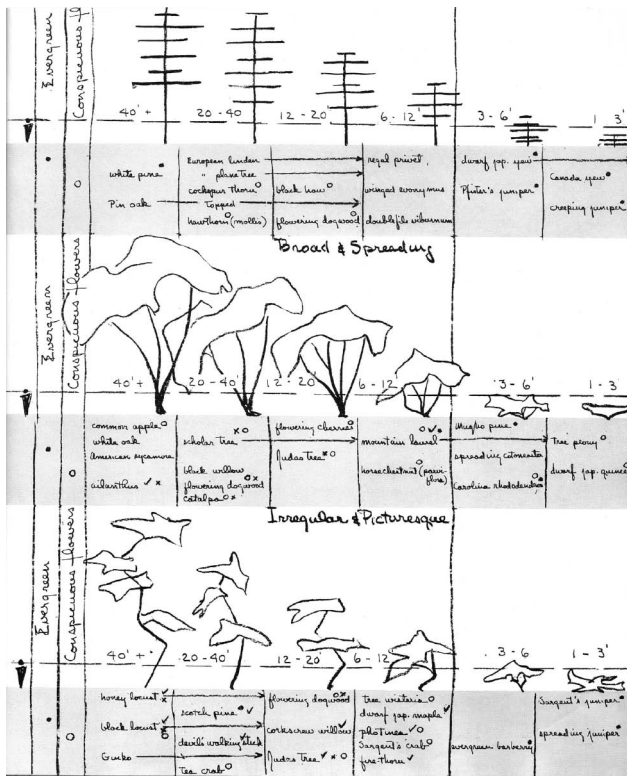 Evergreen
Conspicuous flowers
40' + 20-40 12-20' 6-12' 3-6' 1-3'
white pine
Pin oak
European linden
" plane tree
cockspur thorn
Topped
hawthorn (mollis)
black haw
flowering dogwood
regal privet
winged euonymus
doublefile viburnum
dwarf jap. yew
Pfitzer's juniper
Canada yew
creeping juniper
Broad & Spreading
Evergreen
Conspicuous flowers
40' + 20-40' 12-20' 6-12' 3-6' 1-3'
common apple
white oak
american sycamore
ailanthus
scholar tree
black willow
flowering dogwood
catalpa
flowering cherries
Judas Tree
mountain laurel
horsechestnut (parvi-
flora)
Mugho pine
spreading cotoneaster
Carolina rhododendron
Tree peony
dwarf jap. quince
Irregular & Picturesque
Evergreen
Conspicuous flowers
40' + 20-40' 12-20' 6-12' 3-6' 1-3'
honey locust
black locust
Ginko
scotch pine
devil's walking stick
Tea crab
flowering dogwood
corkscrew willow
Judas Tree
tree wisteria
dwarf jap. maple
photinea
Sargent's crab
fire-thorn
evergreen barberry
Sargent's juniper
spreading juniper